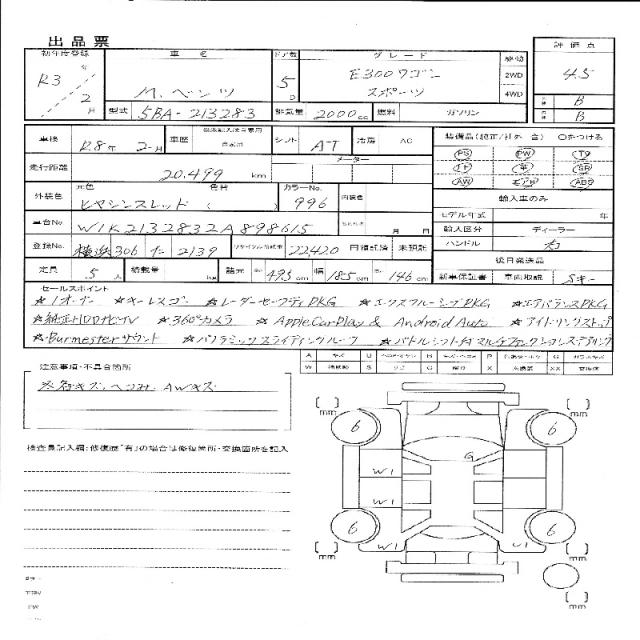 出品票
初年度登録 車名 ドア数 グレード 駆動 評価点
R3年 2月 M.ベンツ 5D E300ワゴン スポーツ 2WD 4WD 4.5
型式 5BA-213283 排気量 2000cc 燃料 ガソリン B
B
車検 R8年 2月 車歴 シフト AT 冷房 AC 装備品(純正/社外 含) ○をつける
走行距離 20,499 km メーター PS PW
外装色 元色 色替 カラーNo. 内装色 AW
ヒヤシンスレッド ( ) 996 輸入車のみ
車台No W1K2132832A898615 月 日 モデル年式 年
登録No 横浜306 2139 リサイクル預託金 22,420 円預託済 未預託 輸入区分 ディーラー
ハンドル 右
定員 5人 積載量 諸元 長 495cm 幅 185cm 高 146cm 後日発送品
新車保証書 車両取説 Sキー
セールスポイント
★1オーナー ★キーレスゴー ★レーダーセーフティPKG ★エクスクルーシブPKG ★エアバランスPKG
★純正HDDナビTV ★360°カメラ ★AppleCarPlay & Android Auto ★アイドリングストップ
★Burmesterサウンド ★パノラミックスライディングルーフ ★パドルシフト付マルチファンクションステアリング
注意事項・不具合箇所
※各キズ、ヘコミ、AWキズ
検査員記入欄:修復歴「有」の場合は修復箇所・交換箇所を記入
mm mm
6 6
G
W1
W1
6 6
W1 U1
mm mm
mm